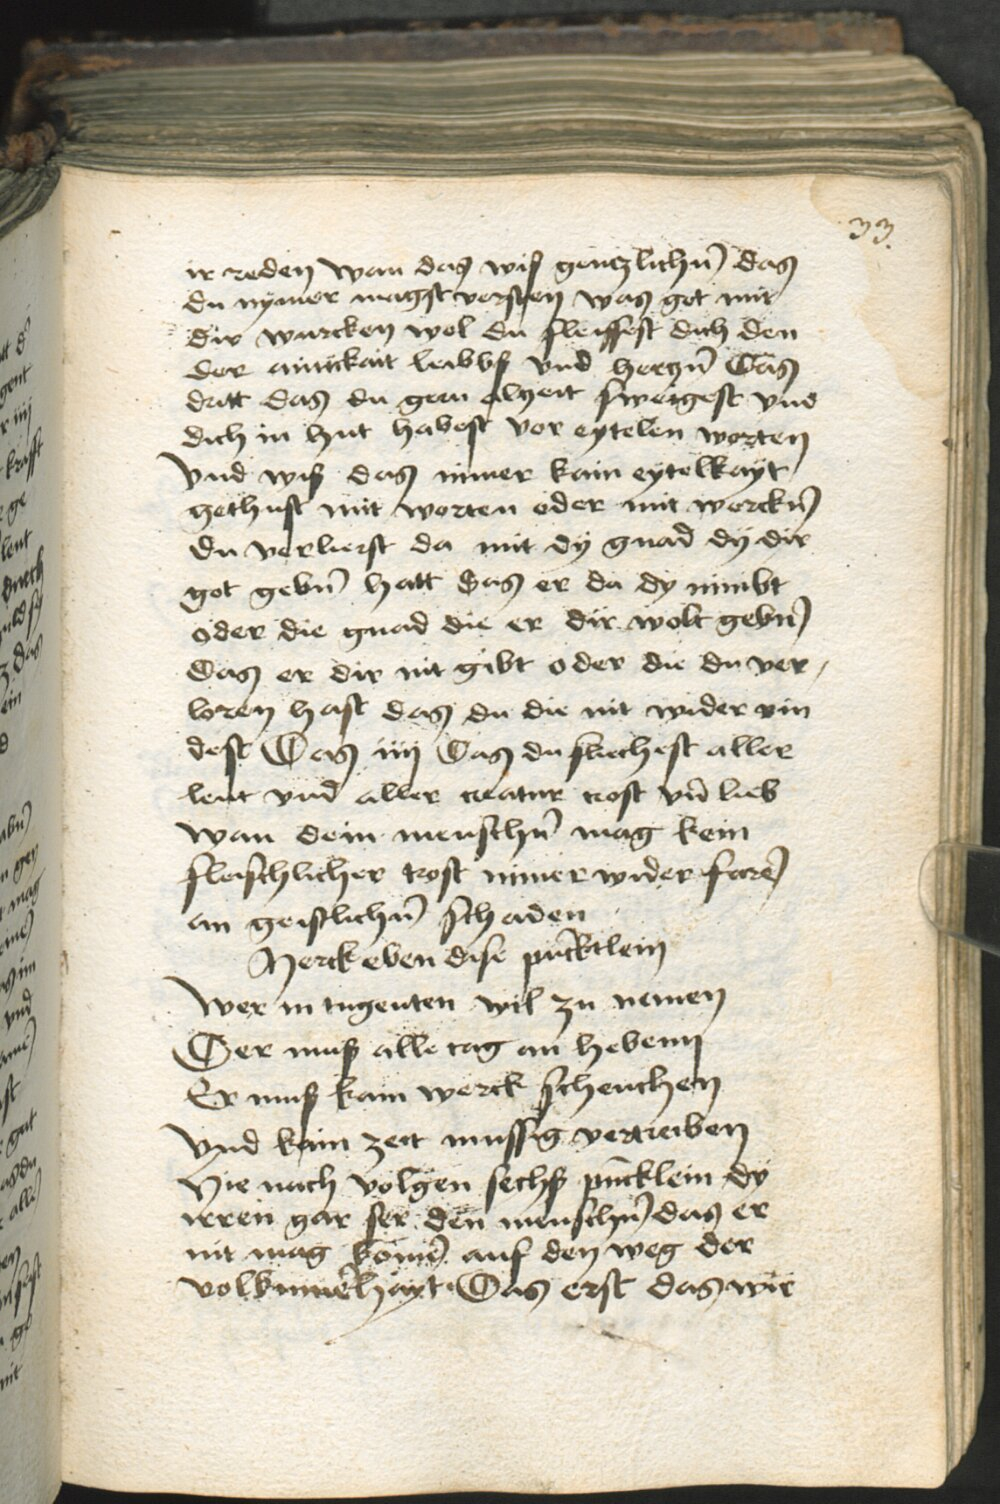 33.
ir reden wan das wiß gentzlichn̄ das
du nymer magst versten was got mit
dir wurcken wol du fleissest dich den
der ainickait leibbß vnd hertzn̄ Das
dritt das du gern alzeit sweigest vnd
dich in hut habest vor eytelen worten
Vnd wiß das nimer kain eytelkayt
gethust mit worten oder mit werckn̄
du verlierst da mit dÿ gnad dÿ dir
got gebn̄ hatt das er da dy nimbt
oder die gnad die er dir wolt gebn̄
das er dir nit gibt oder die du ver,
loren hast das du die nit wider vin
dest Das iiij Das du fliechest aller
leut vnd aller creatur trost vn̄ lieb
wan dem menschn̄ mag kein
fleischlicher trost nimer wider farē
an geistlichn̄ schaden
Merck eben dise pūcktlein
Wer in tugenten wil zu nemen
Der muß alle tag an hebenn
Er muß kain werck scheuchen
Vnd kain zeit mussig vertreiben
Hie nach volgen sechß pūncklein dÿ
irren gar ser den menschn̄ das er
nit mag komē auf den weg der
volkumēhayt. Das erst das wir